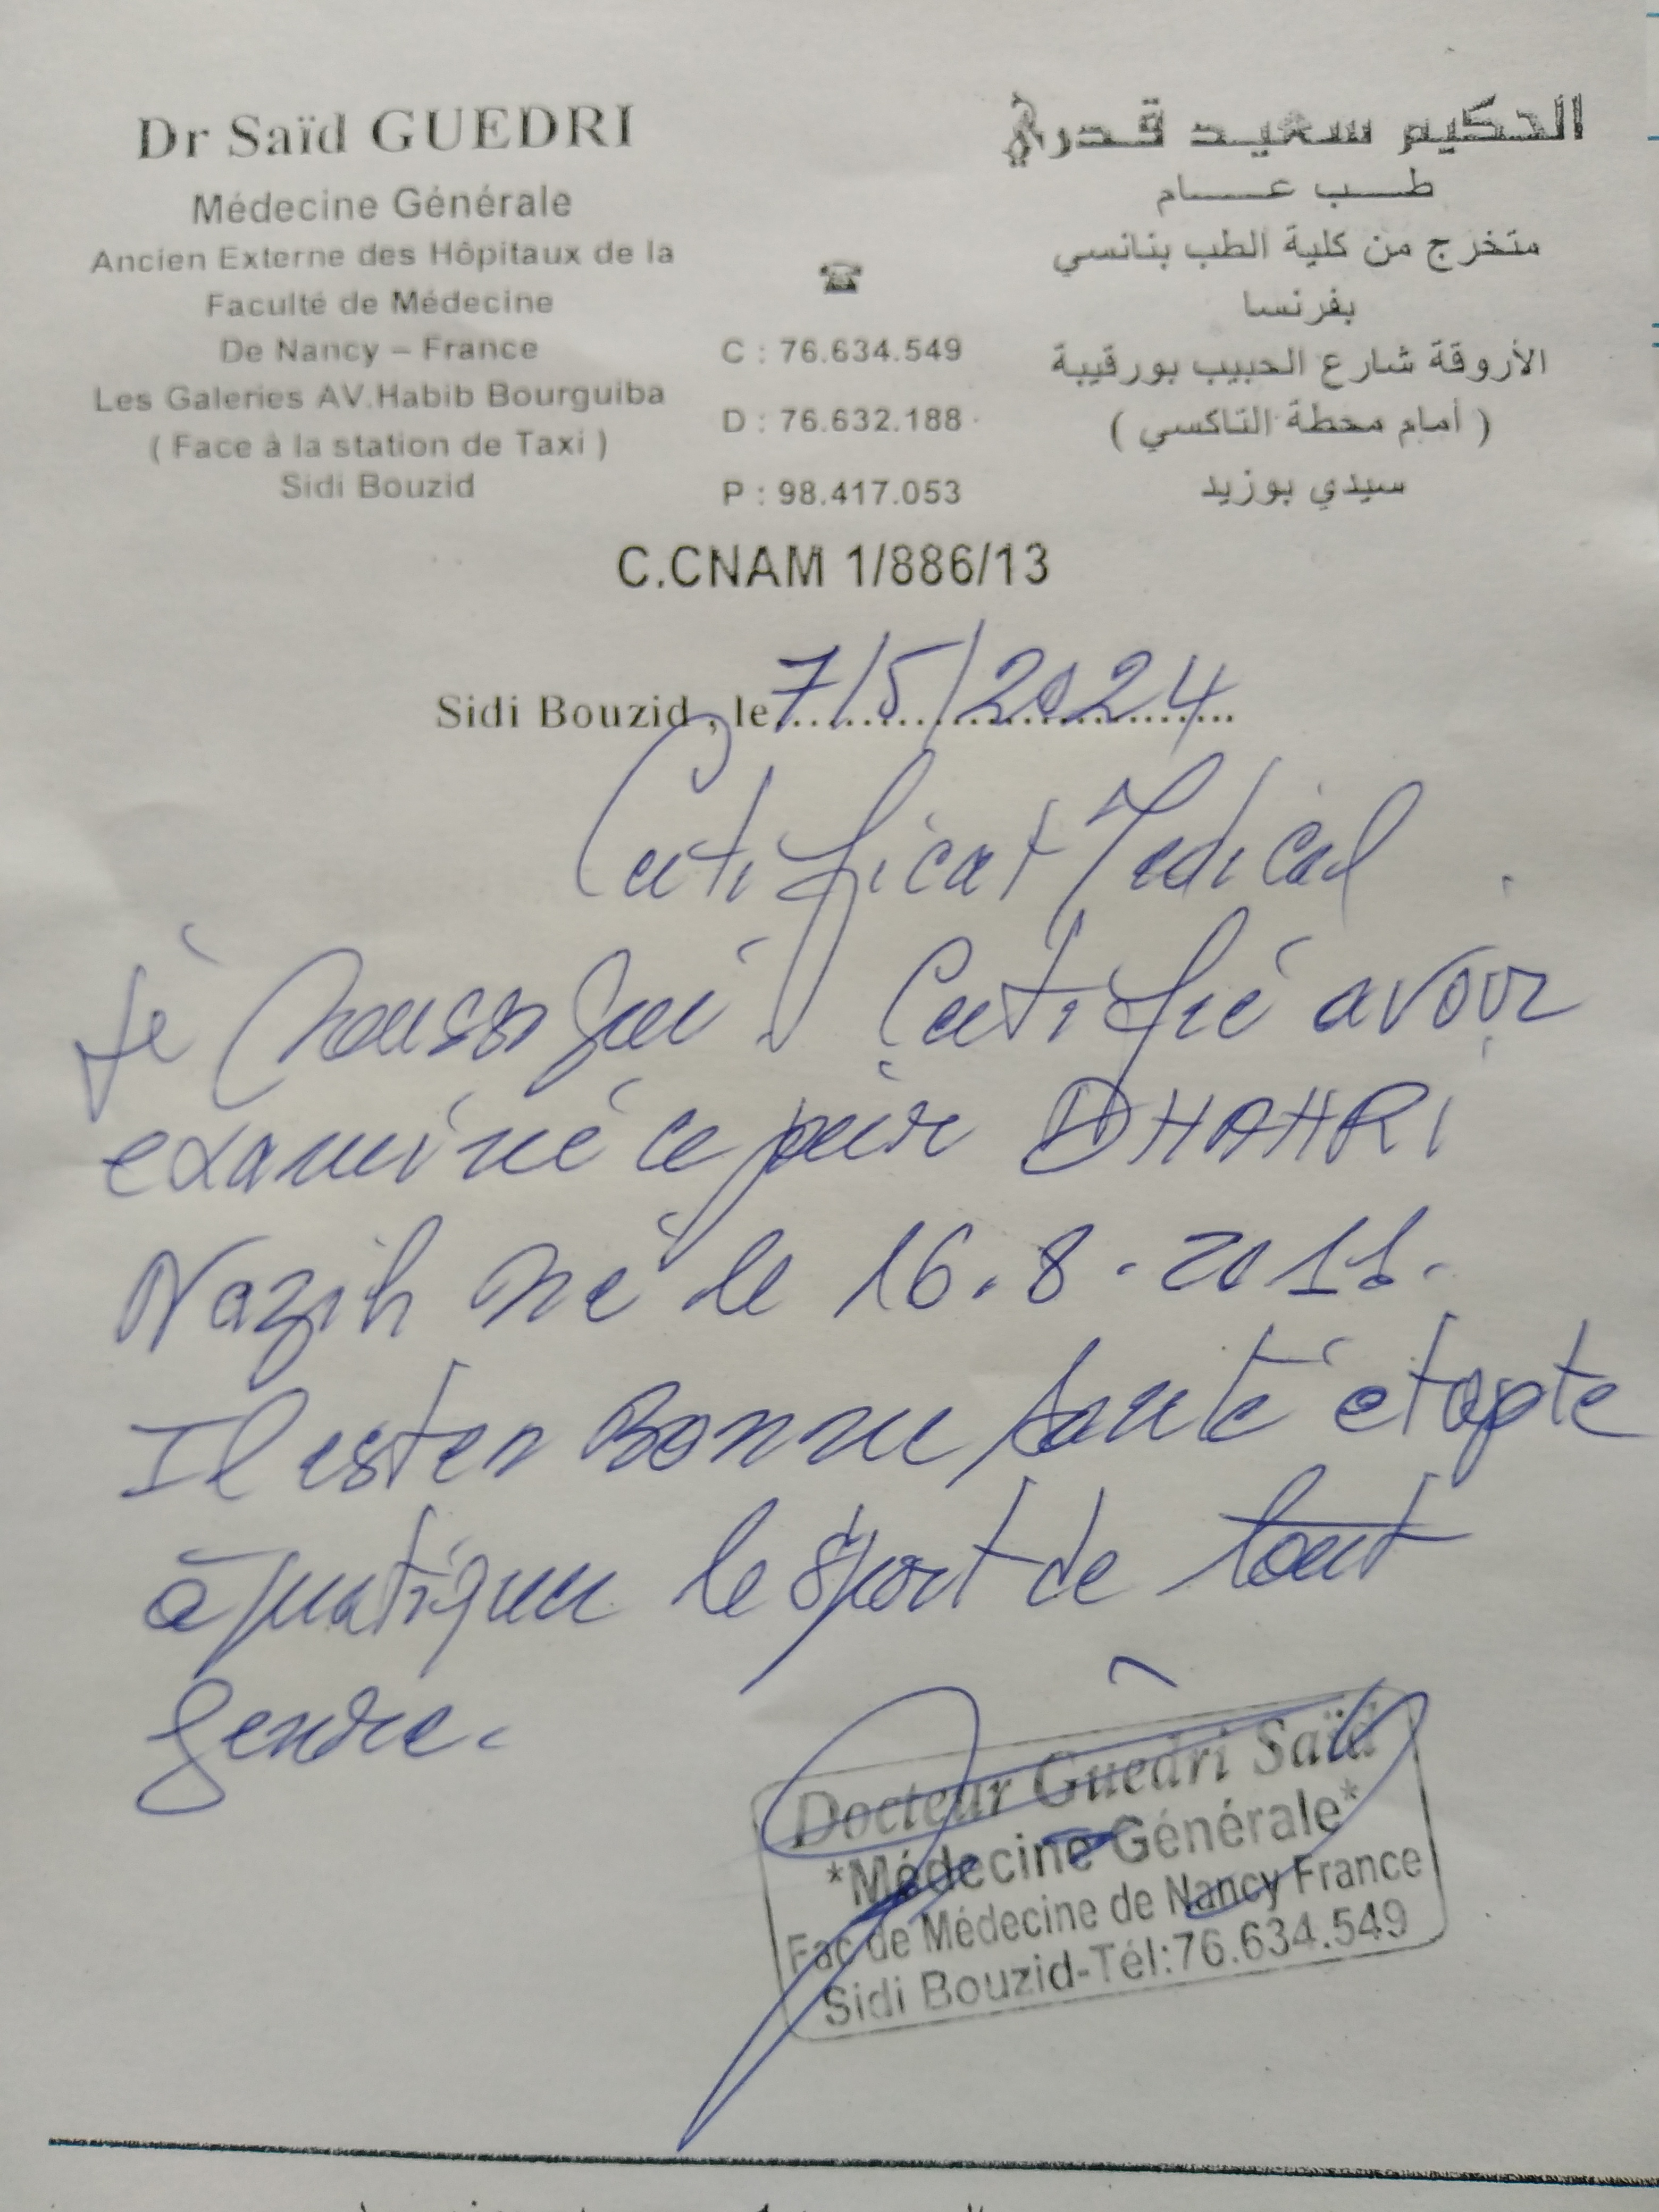 Dr Saïd GUEDRI
Médecine Générale
Ancien Externe des Hôpitaux de la
Faculté de Médecine
De Nancy – France
Les Galeries AV.Habib Bourguiba
( Face à la station de Taxi )
Sidi Bouzid
☎
C : 76.634.549
D : 76.632.188
P : 98.417.053
الحكيم سعيد قدري
طب عام
متخرج من كلية الطب بنانسي
بفرنسا
الأروقة شارع الحبيب بورقيبة
( أمام محطة التاكسي )
سيدي بوزيد
C.CNAM 1/886/13
Sidi Bouzid , le 7/5/2024
Certificat Medical
Je soussigné Certifié avoir
examiné ce jour DHAHRI
Nazih né le 16.8.2011.
Il est en Bonne santé et apte
à pratiquer le sport de tout
genre.
Docteur Guedri Saïd
*Médecine Générale*
Fac de Médecine de Nancy France
Sidi Bouzid-Tél:76.634.549